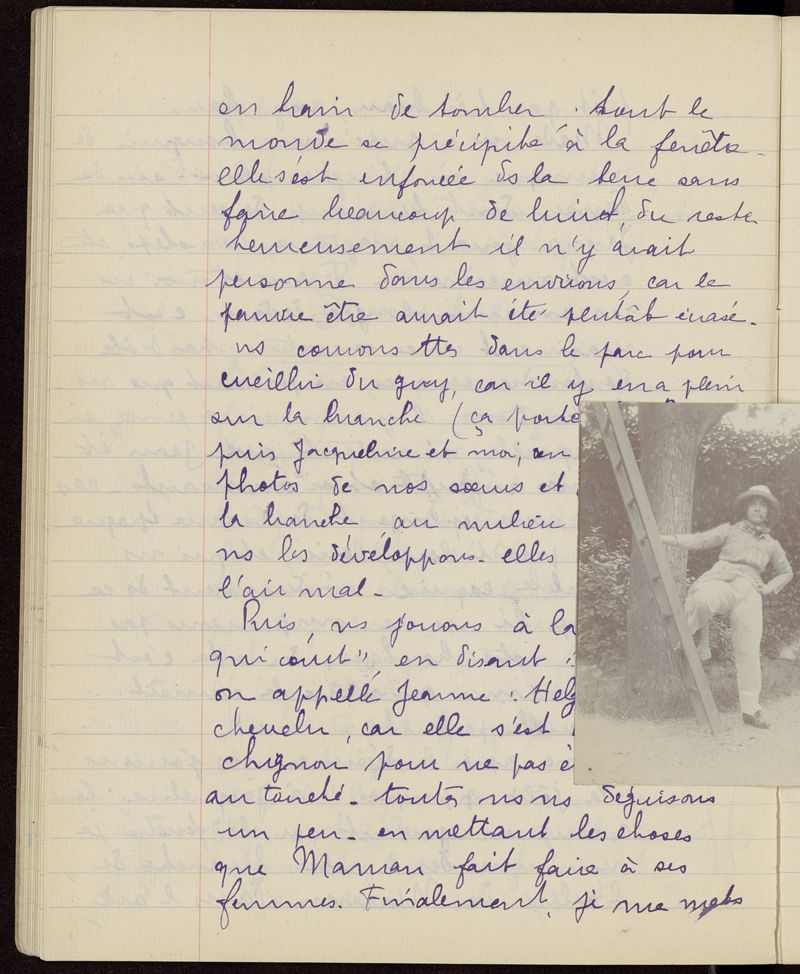 en train de tomber. tout le
monde se précipite à la fenêtre -
elle s'est enfoncée ds la terre sans
faire beaucoup de bruit, du reste
heureusement il n'y avait
personne dans les environs, car le
pauvre être aurait été plutôt écrasé -
ns courons ttes dans le parc pour
cueillir du guy, car il y en a plein
sur la branche (ça porte
puis Jacqueline et moi,
photos de nos sœurs et
la branche au milieu
ns les développons - elles
l'air mal -
Puis, ns jouons à la
qui court", en disant :
on appelle Jeanne : Hel
chevelu, car elle s'est
chignon pour ne pas ê
au touché - toutes ns ns déguisons
un peu - en mettant les choses
que Maman fait faire à ses
femmes. Finalement, je me mets